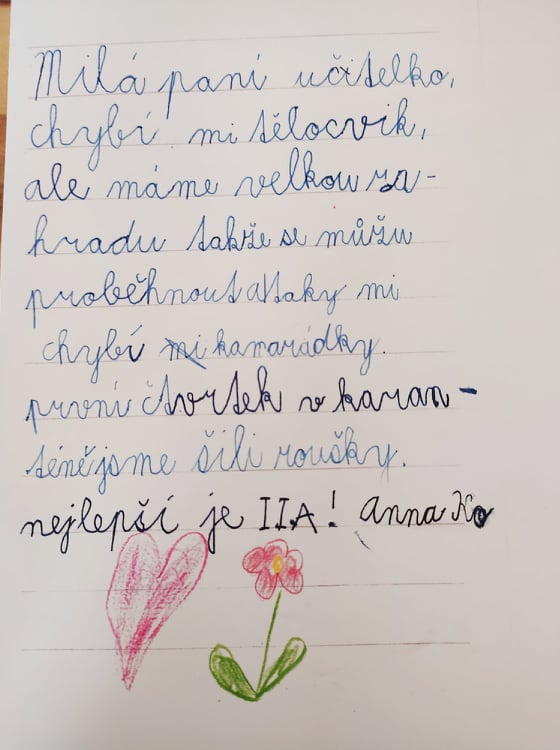 Milá paní učitelko,
chybí mi tělocvik,
ale máme velkou za-
hradu takže se můžu
proběhnout a taky mi
chybí mi kamarádky.
první čtvrtek v karan-
téně jsme šili roušky.
nejlepší je IIA! Anna Ko